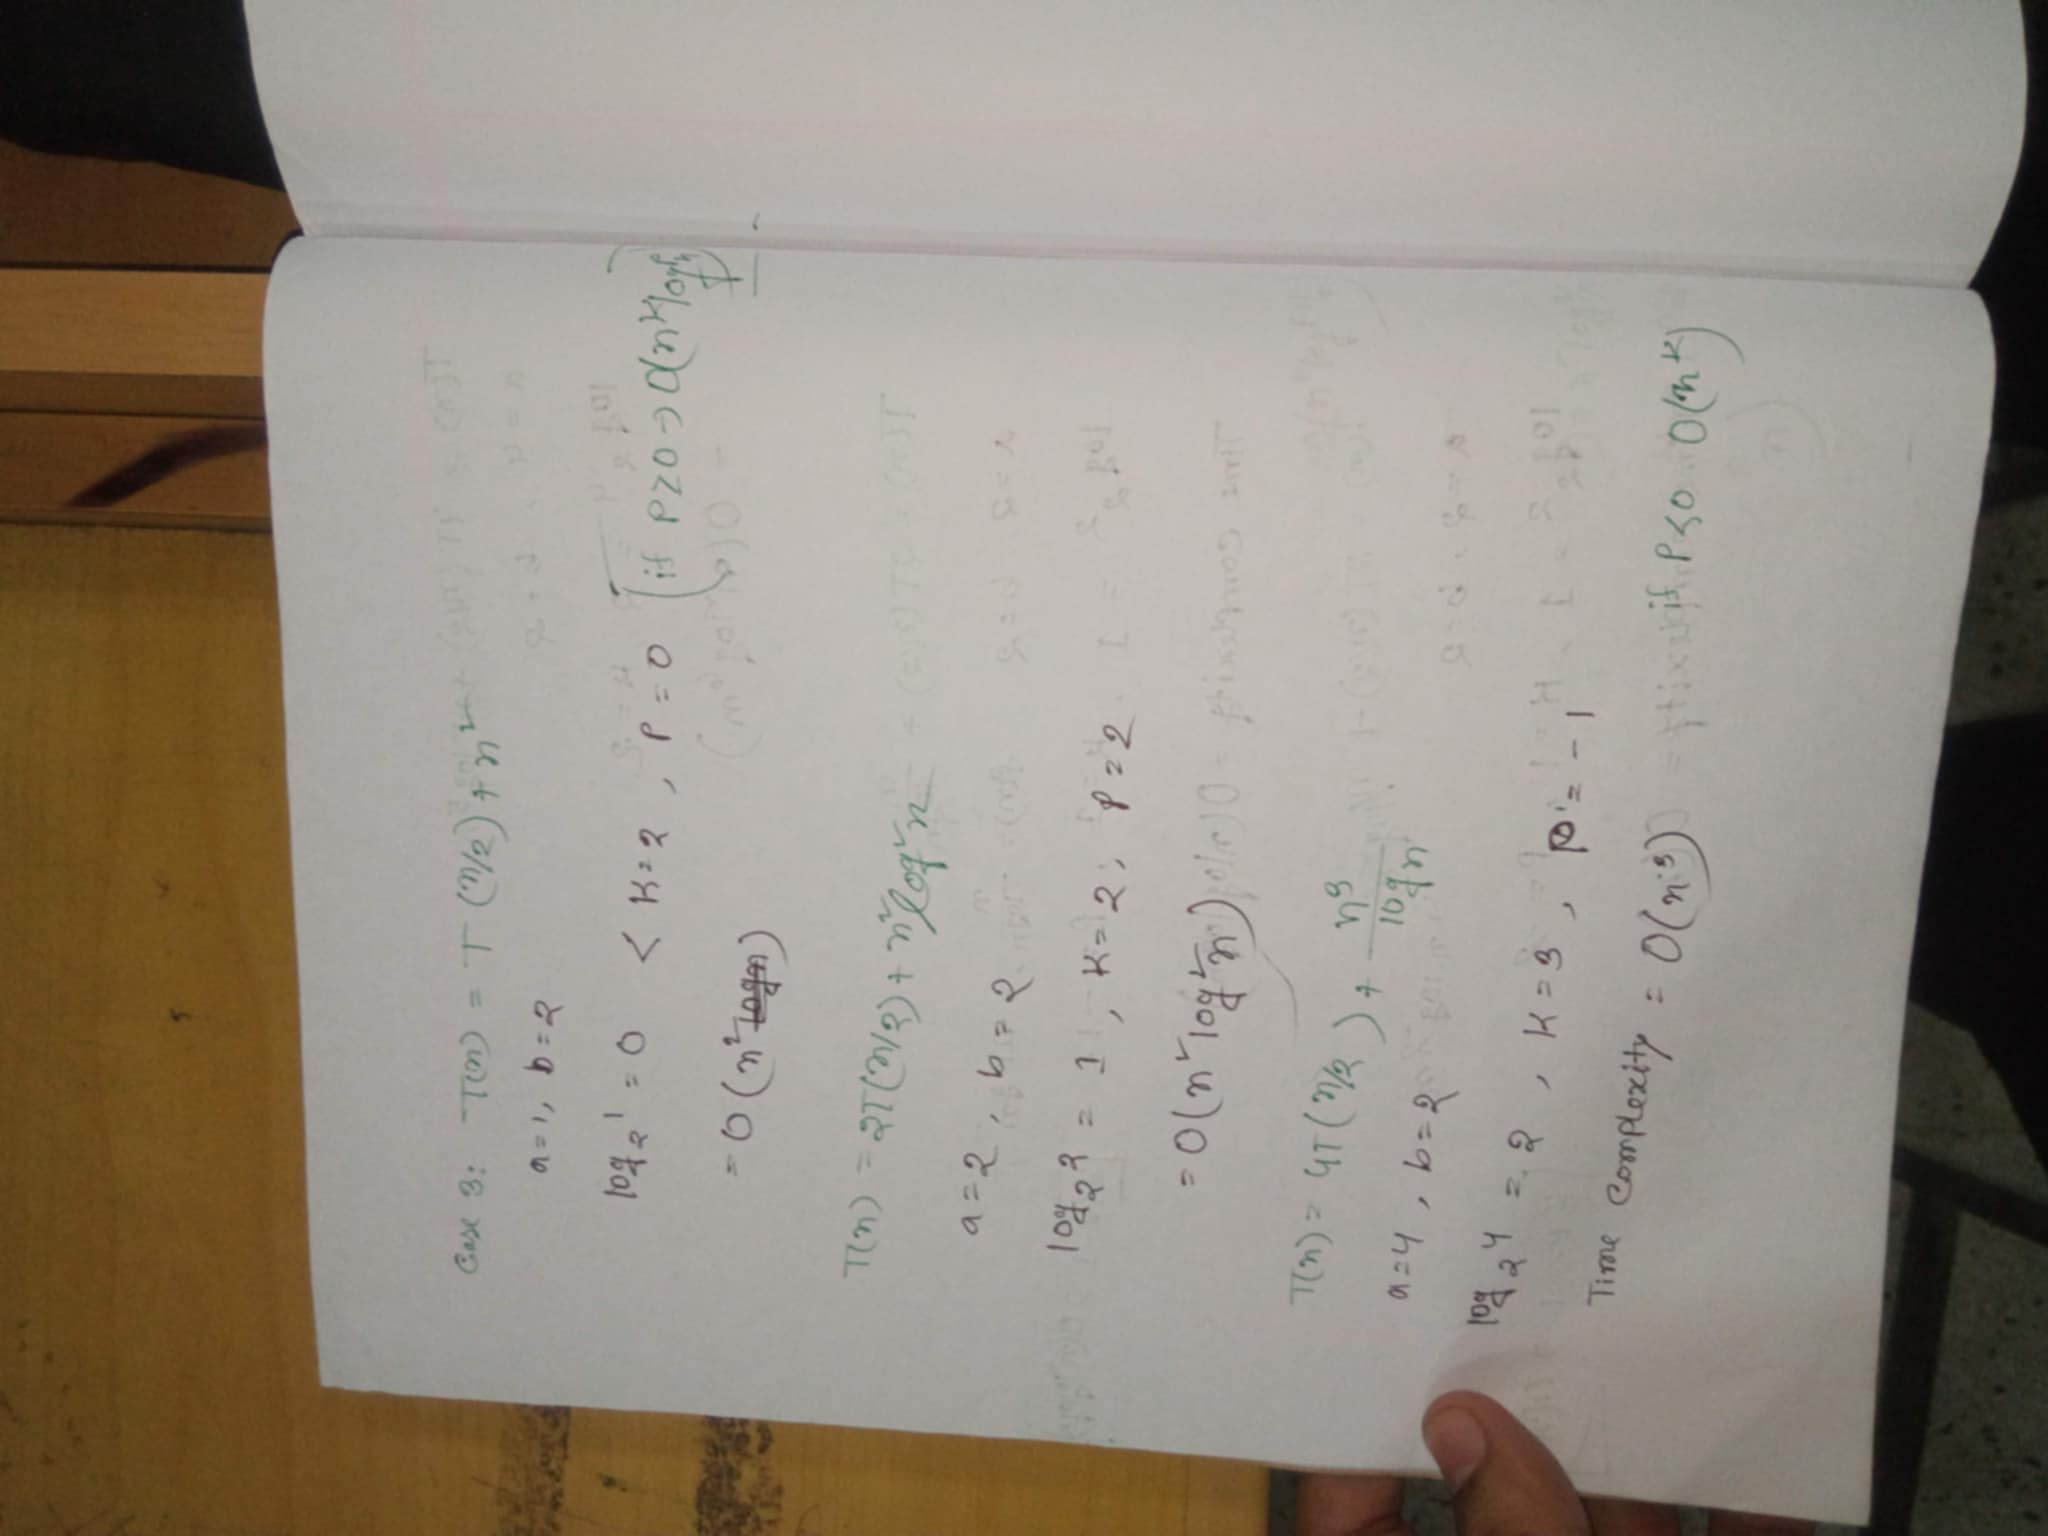 Case 3: T(n) = T(n/2) + n²
a=1, b=2
log₂1 = 0 < K=2, P=0 [if P≥0 → O(nᴷlogᴾn)]
= O(n²)
T(n) = 2T(n/2) + n²log²n
a=2, b=2
log₂2 = 1, K=2, P=2
= O(n²log²n)
T(n) = 4T(n/2) + n³/logn
a=4, b=2
log₂4 = 2, K=3, P=-1
Time Complexity = O(n³) if P<0 O(nᴷ)